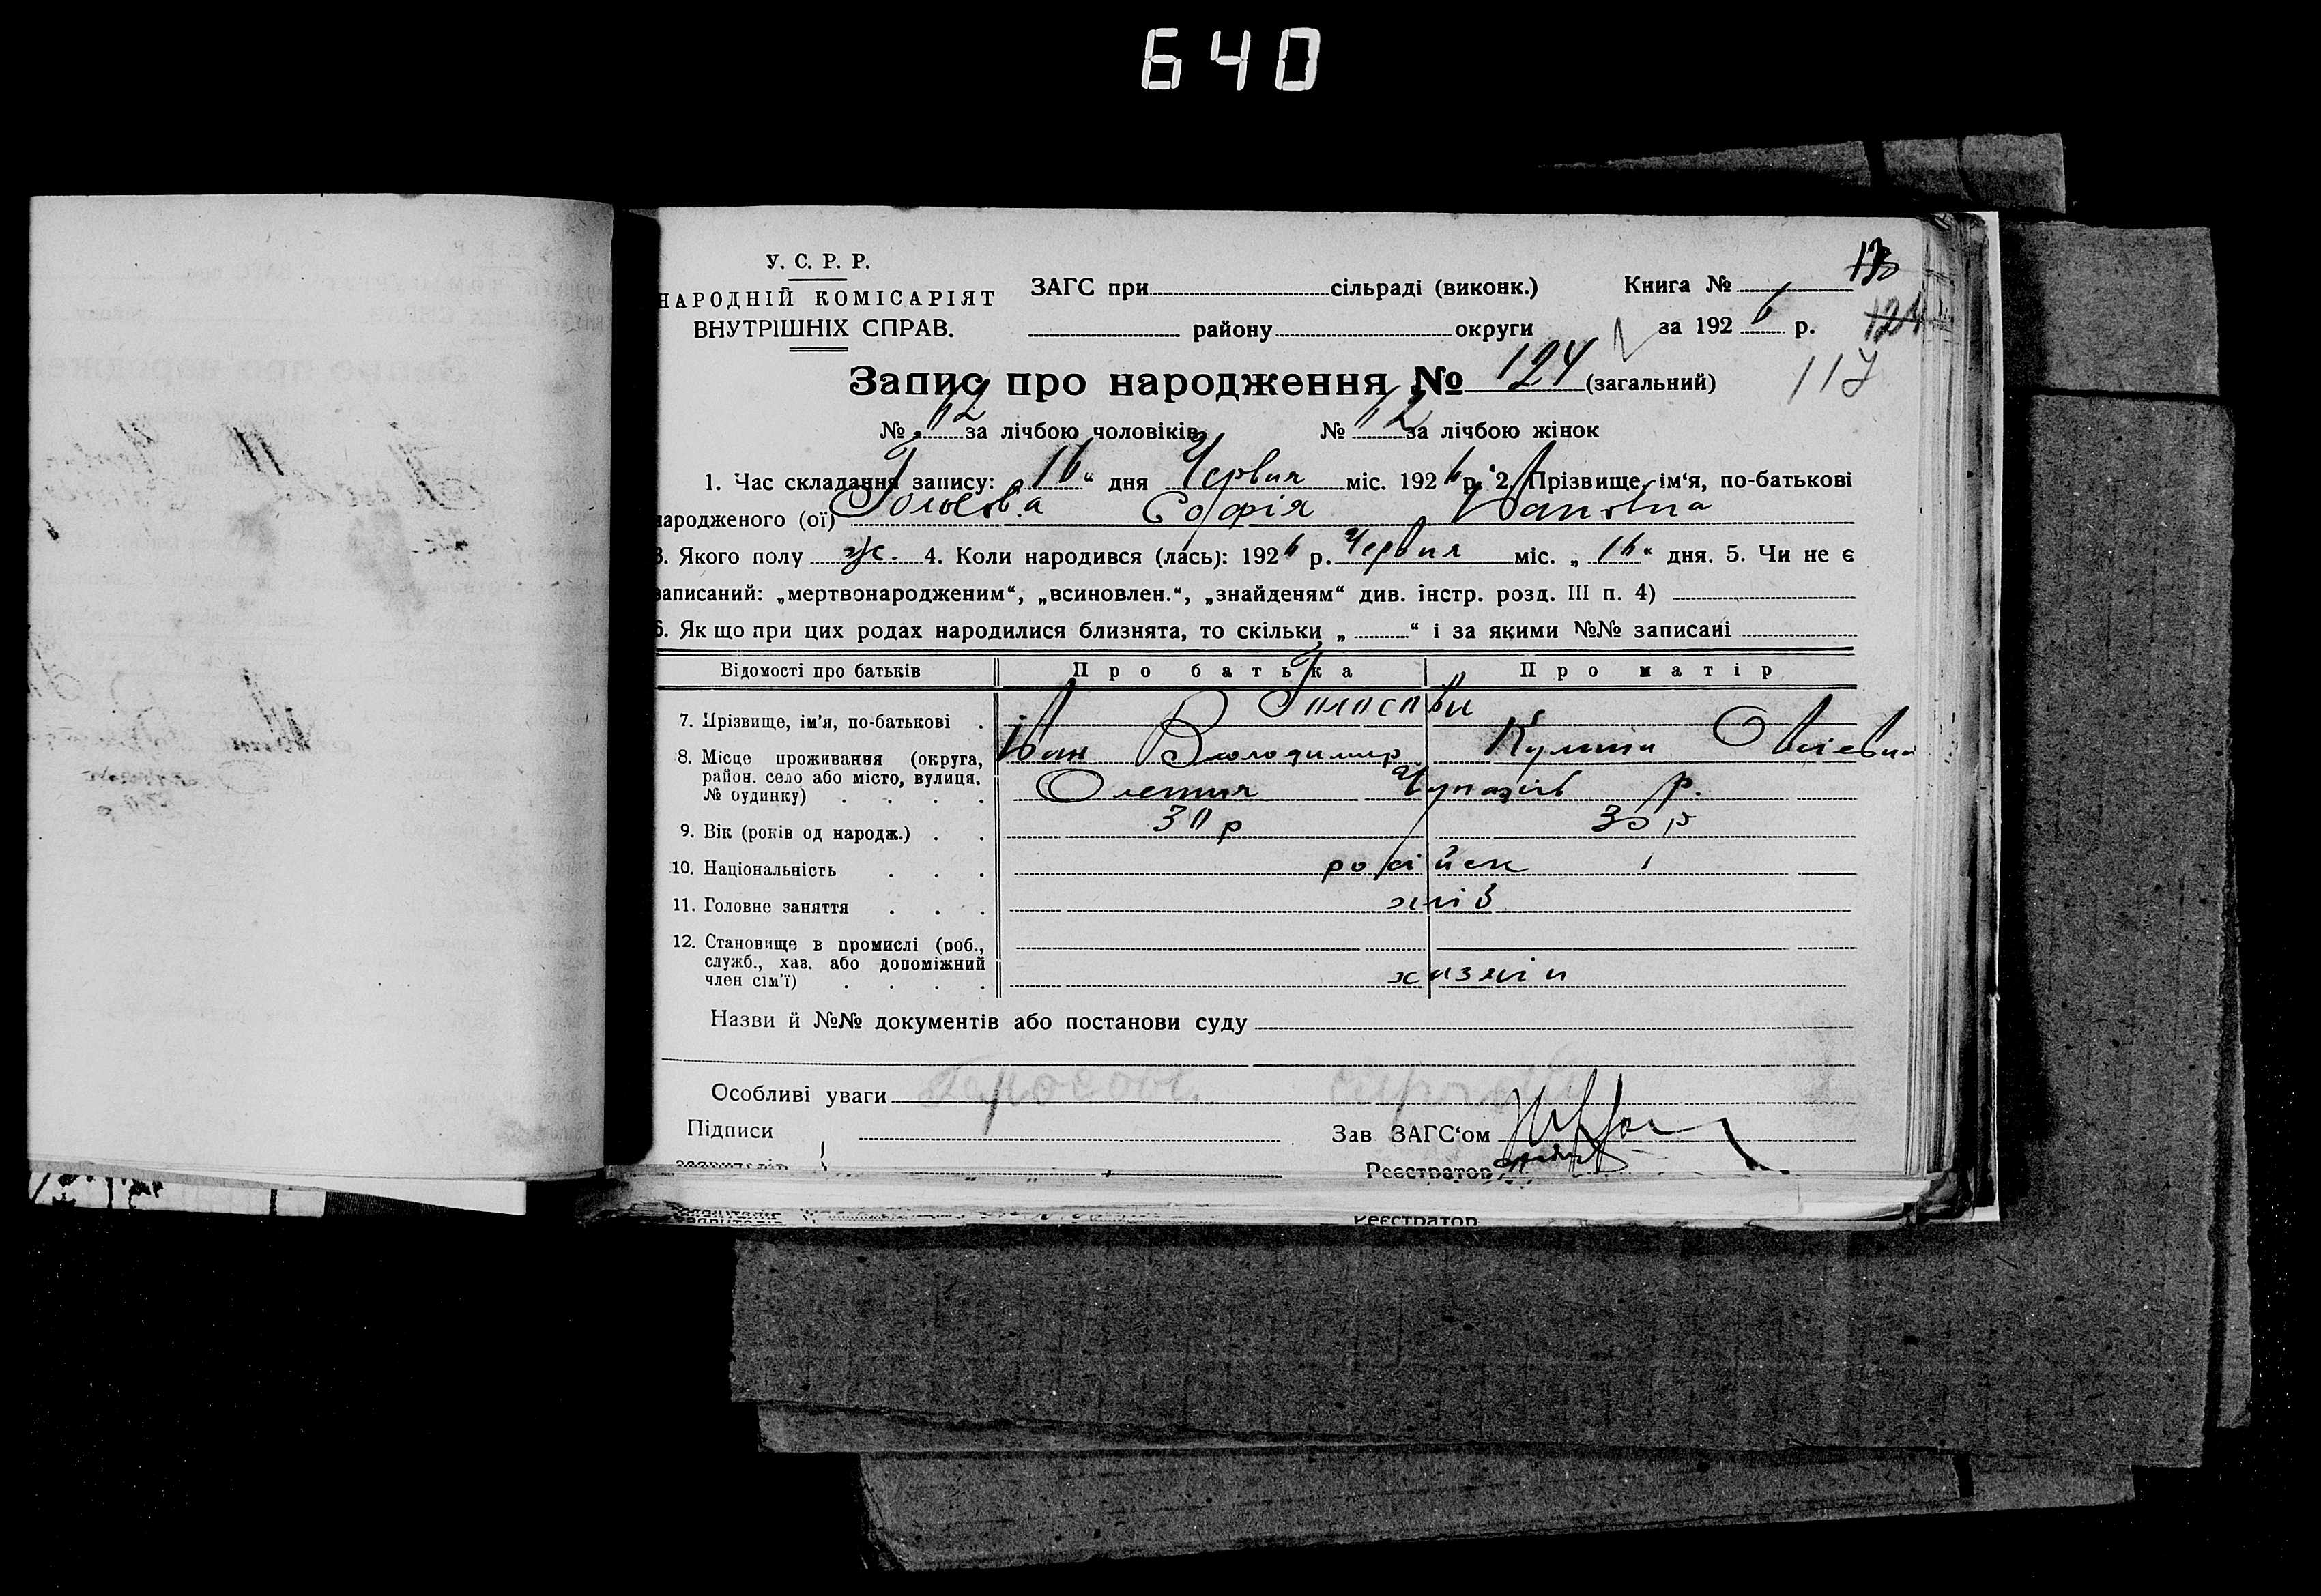 640
У. С. Р. Р.
НАРОДНІЙ КОМІСАРІЯТ
ВНУТРІШНІХ СПРАВ.
ЗАГС при сільраді (виконк.)
району округи
Книга №
за 1926 р.
124
117
Запис про народження № 124 (загальний)
№ 62 за лічбою чоловіків № 62 за лічбою жінок
1. Час складання запису: „16“ дня Червня міс. 1926 р. 2. Прізвище, ім‘я, по-батькові
народженого (ої) Софія Івановна
3. Якого полу ж. 4. Коли народився (лась): 1926 р. Червня міс. „16“ дня. 5. Чи не є
записаний: „мертвонародженим“, „всиновлен.“, „знайденям“ див. інстр. розд. III п. 4)
6. Як що при цих родах народилися близнята, то скільки „ “ і за якими №№ записані
Відомості про батьків Про батька Про матір
7. Прізвище, ім’я, по-батькові
Іван Володимир
8. Місце проживання (округа, район. село або місто, вулиця, № будинку)
р.
9. Вік (років од народж.) 30 р 30 р
10. Національність російск
11. Головне заняття хліб
12. Становище в промислі (роб., служб., хаз. або допоміжний член сім’ї) хазяін
Назви й №№ документів або постанови суду
Особливі уваги
Підписи
Зав ЗАГС‘ом
Реєстратор
Реєстратор